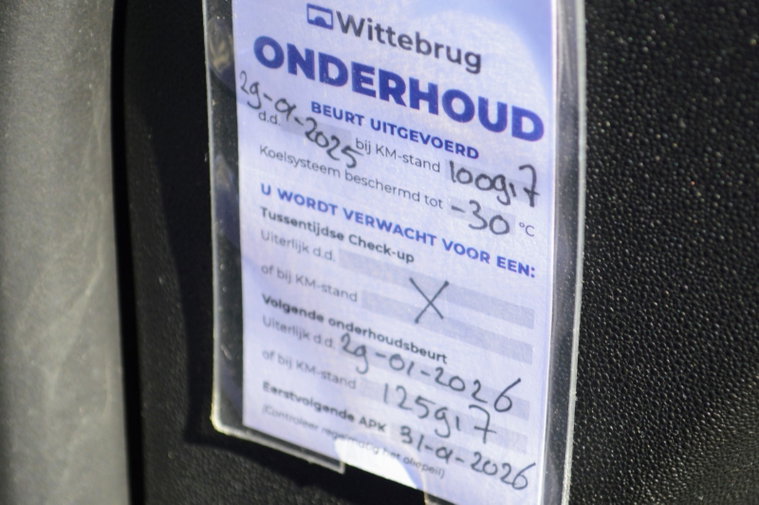 Wittebrug
ONDERHOUD
BEURT UITGEVOERD
d.d. 29-01-2025 bij KM-stand 100917
Koelsysteem beschermd tot -30 °C
U WORDT VERWACHT VOOR EEN:
Tussentijdse Check-up
Uiterlijk d.d.
of bij KM-stand X
Volgende onderhoudsbeurt
Uiterlijk d.d. 29-01-2026
of bij KM-stand 125917
Eerstvolgende APK 31-01-2026
(Controleer regelmatig het oliepeil)